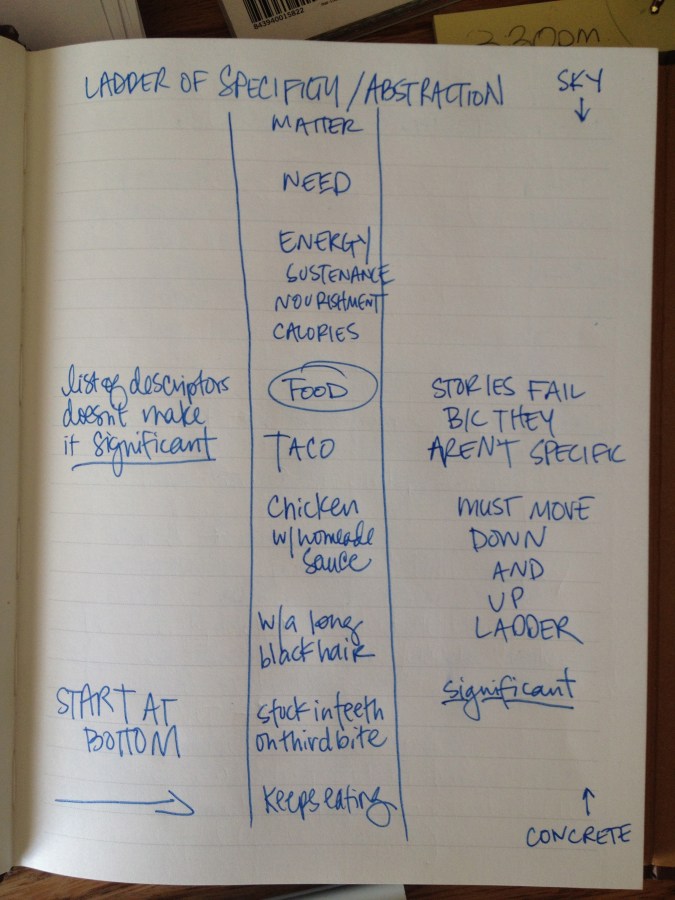 843940015822
3:30pm
LADDER OF SPECIFICTY / ABSTRACTION
SKY
↓
MATTER
NEED
ENERGY
SUSTENANCE
NOURISHMENT
CALORIES
FOOD
list of descriptors
doesn't make
it significant
STORIES FAIL
B/C THEY
AREN'T SPECIFIC
TACO
chicken
w/ homeade
sauce
MUST MOVE
DOWN
AND
UP
LADDER
w/ a long
black hair
significant
START AT
BOTTOM
→
stuck in teeth
on third bite
keeps eating
↑
CONCRETE